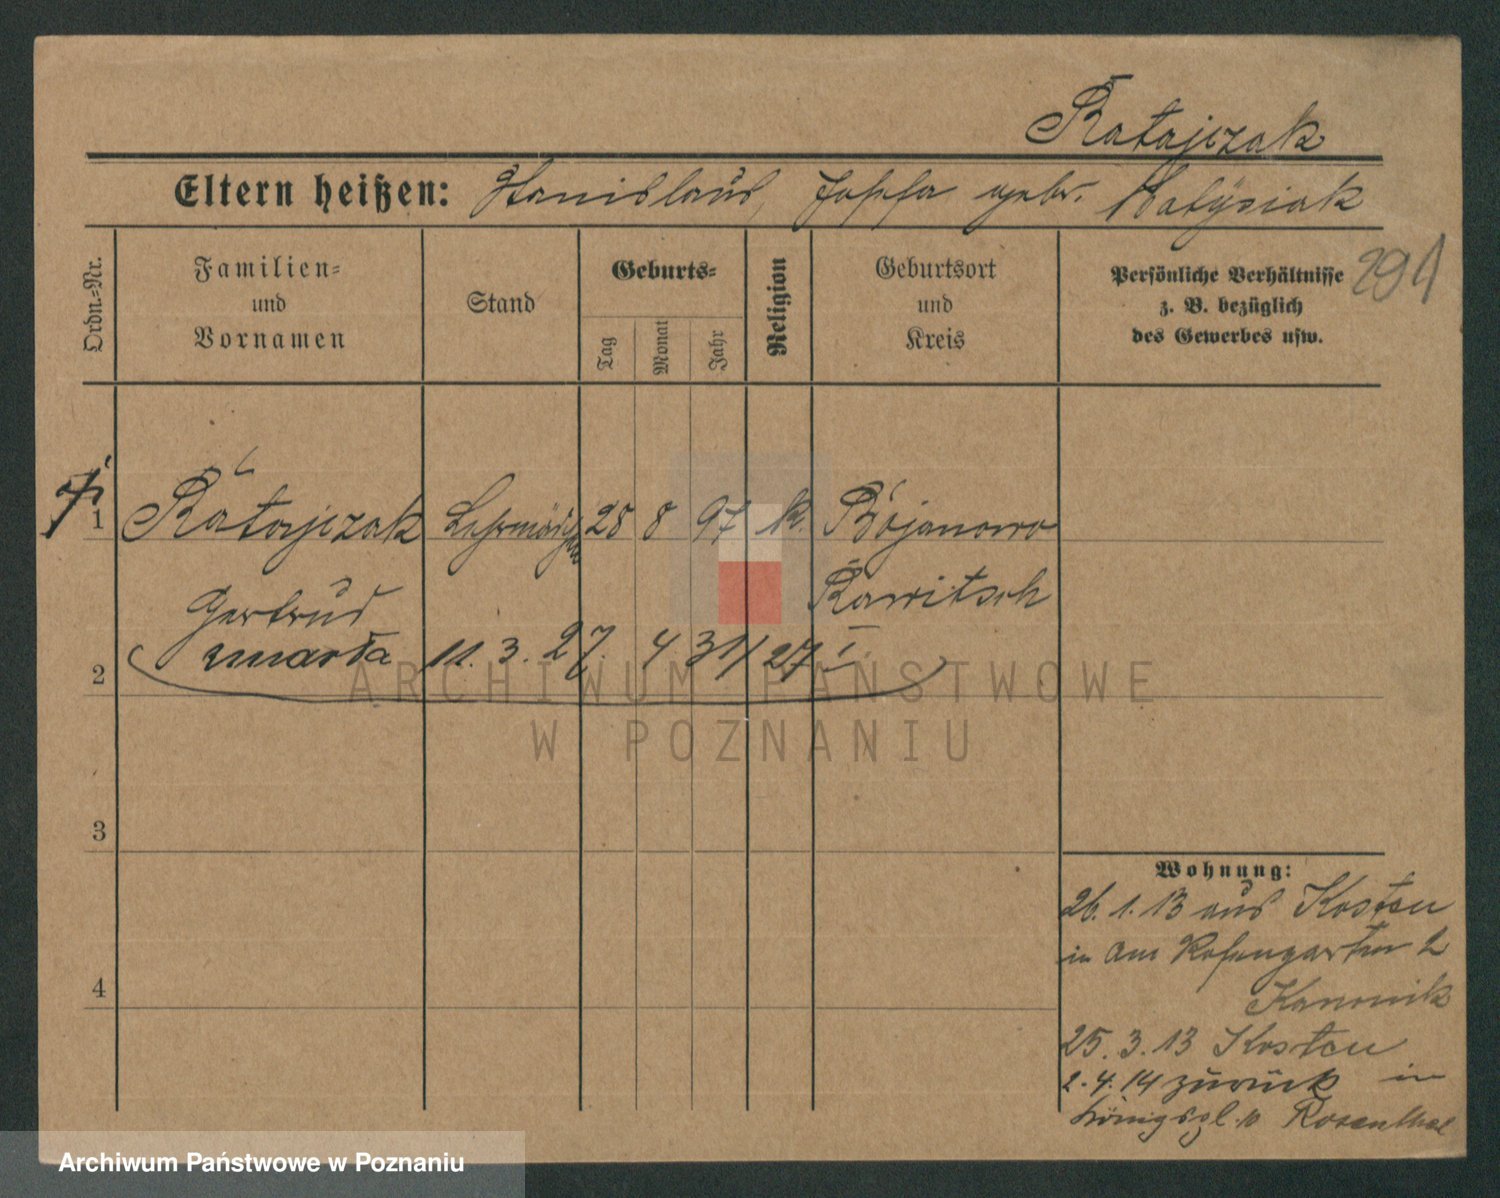 Ratajczak
Eltern heißen: Stanislaus, Josefa geb. Matysiak
Ordn.-Nr.
Familien-
und
Vornamen
Stand
Geburts-
Tag
Monat
Jahr
Religion
Geburtsort
und
Kreis
Persönliche Verhältnisse
z. B. bezüglich
des Gewerbes usw.
291
1 Ratajczak Lehrmädchen 28 8 97 k. Bojanowo
Gertrud Rawitsch
2 zmarła 11. 3. 27. 431/27 I
3
4
Wohnung:
26. 1. 13 aus Kosten
in am Rosengarten 2
Kanonik
25. 3. 13 Kosten
2. 4. 14 zurück in
Königspl. 10 Rosenthal
ARCHIWUM PAŃSTWOWE
W POZNANIU
Archiwum Państwowe w Poznaniu